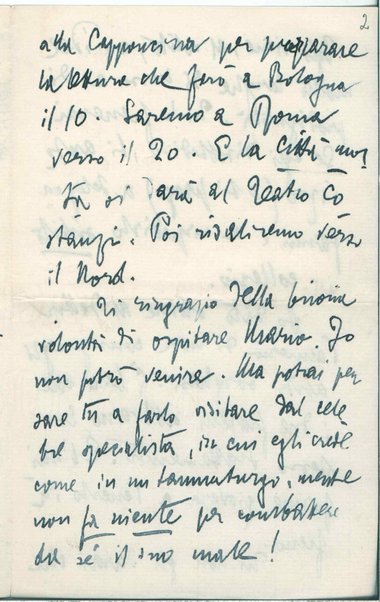 2
alla Capponcina per preparare
la letture che farò a Bologna
il 10. Saremo a Roma
verso il 20. E la città mor-
ta si darà al Teatro Co
stanzi. Poi risaliremo verso
il Nord.
Ti ringrazio della buona
volontà di ospitare Mario. Io
non potrò venire. Ma potrai pen
sare tu a farlo visitare dal cele
bre specialista, in cui egli crede
come in un taumaturgo, mentre
non fa niente per combattere
da sé il suo male!